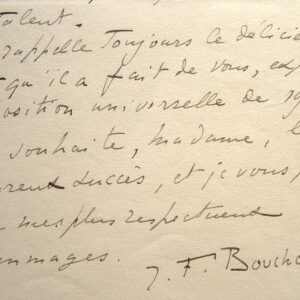 Talent.
rappelle Toujours le délicie
qu'il a fait de vous, exp
osition universelle de 19
souhaite, madame, l
reux succès, et je vous
mes plus respectueux
ommages.
J. F. Bouch